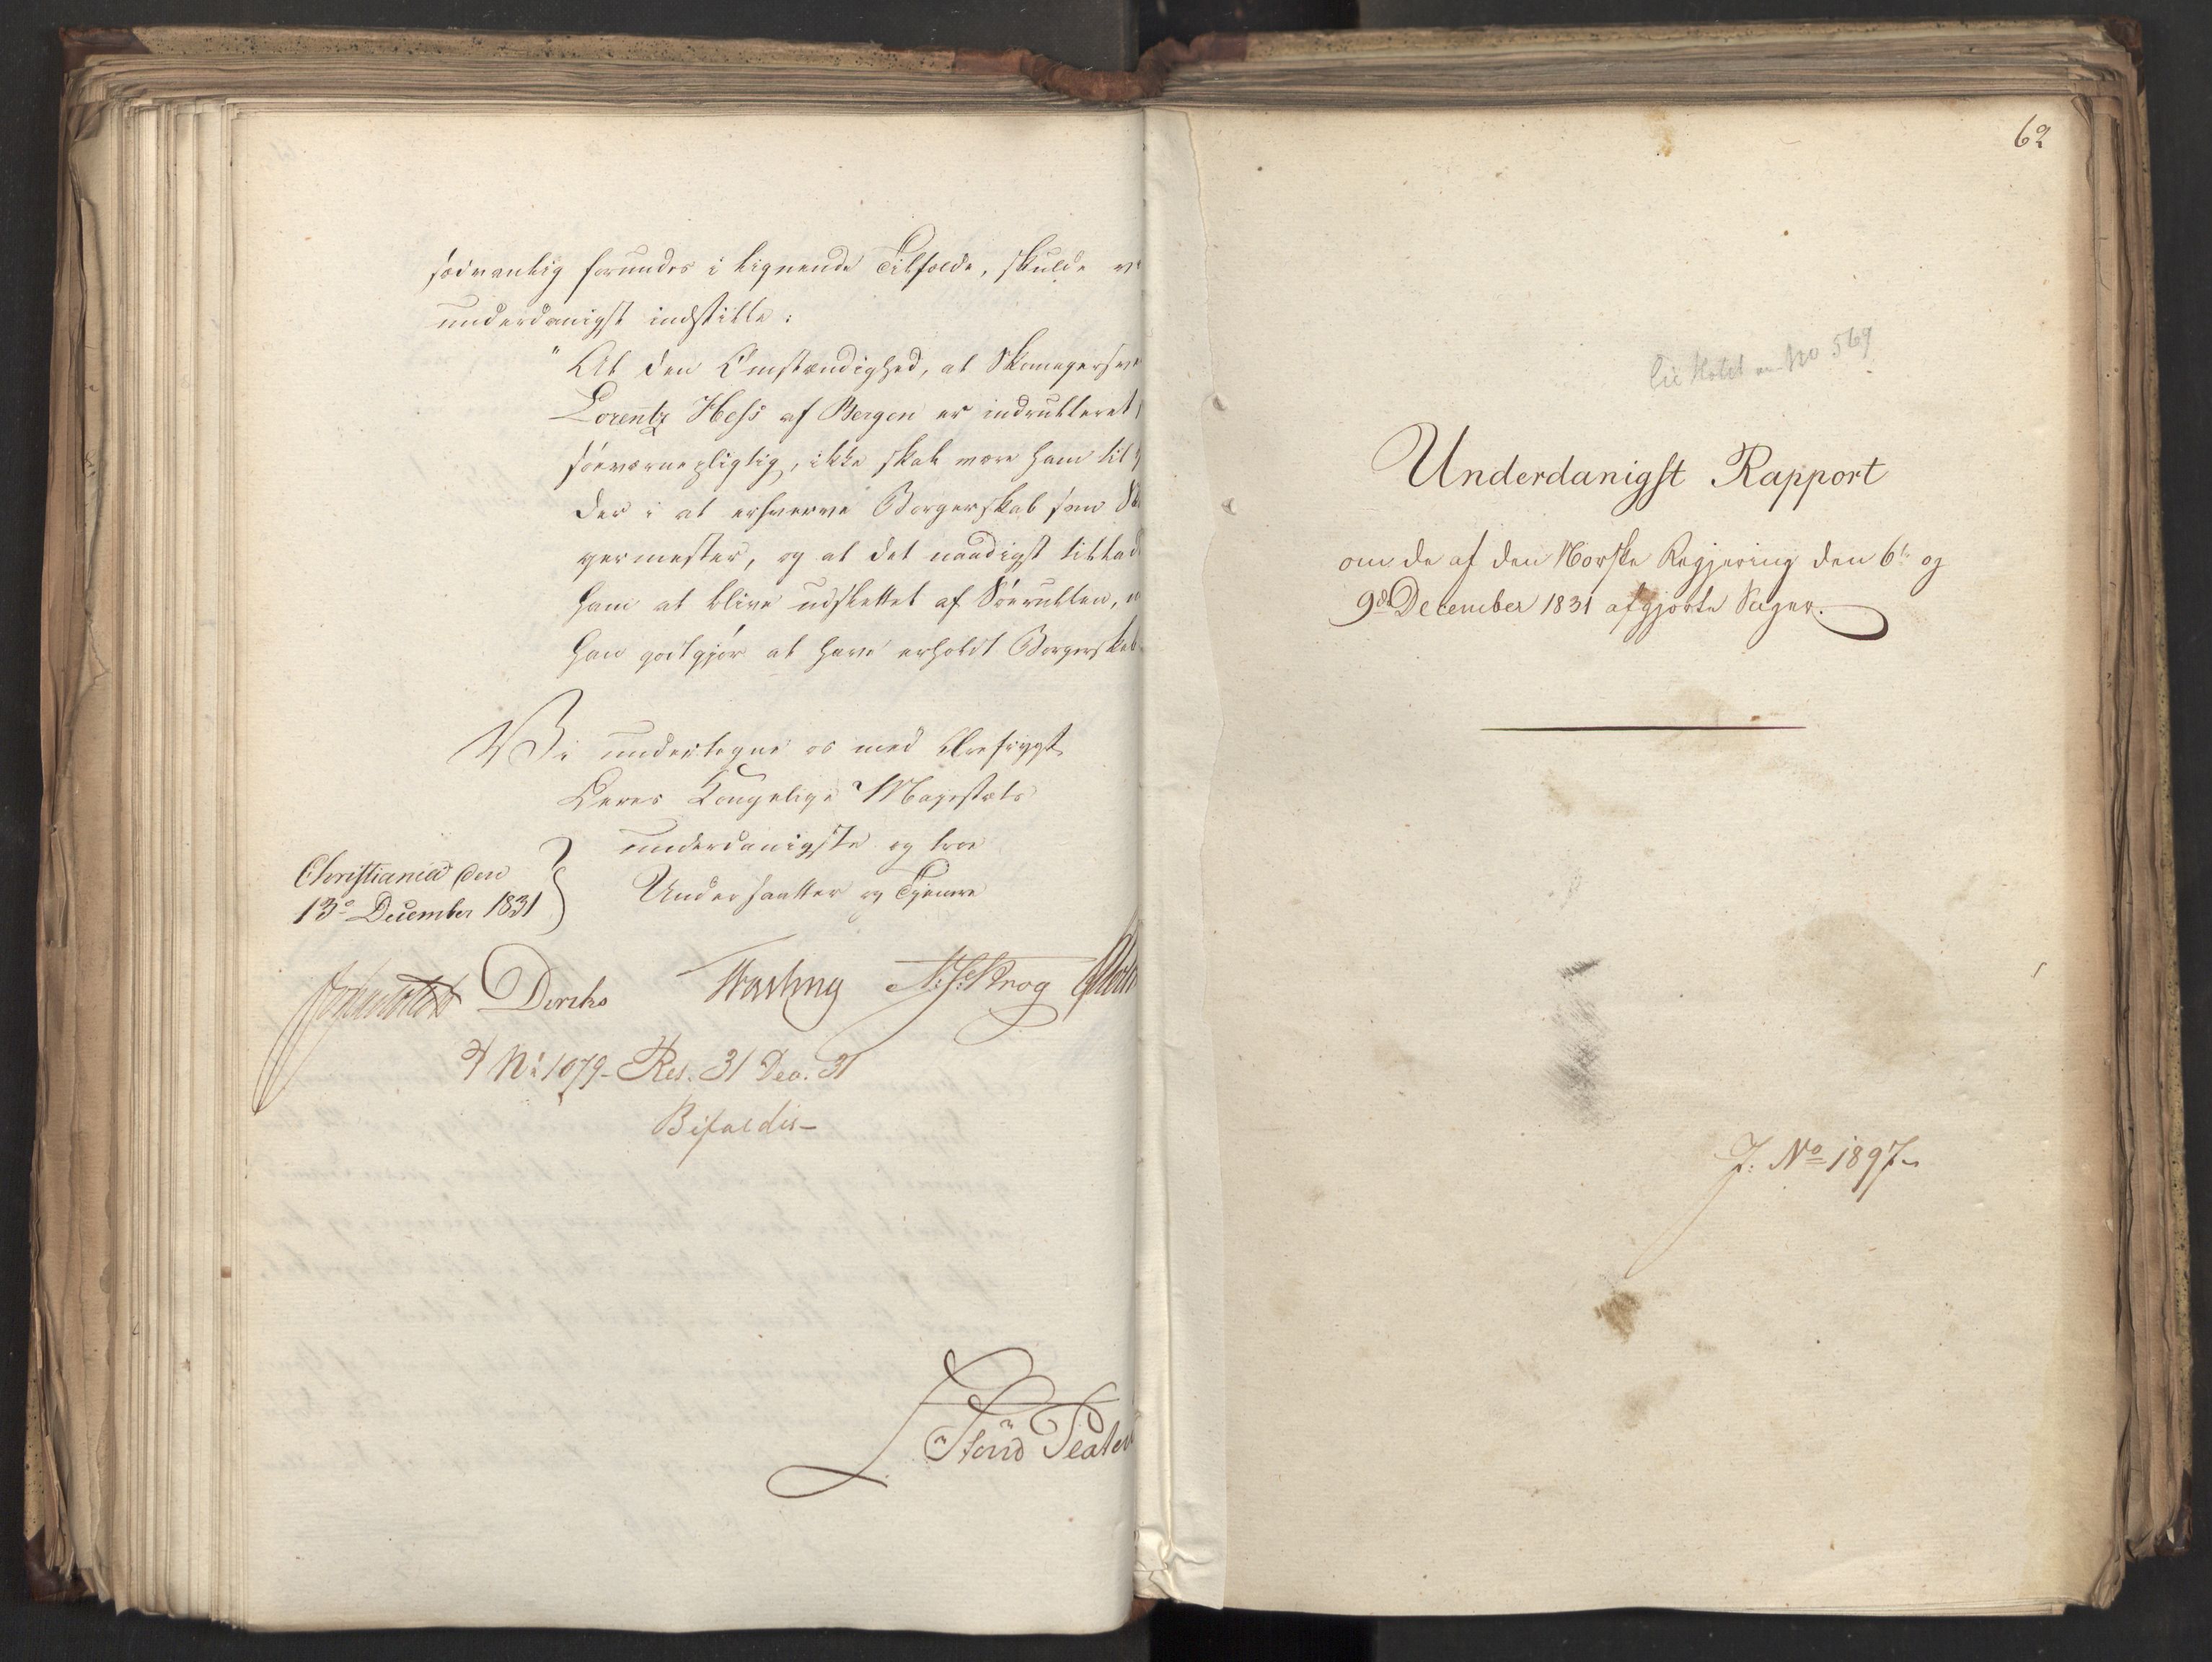 sædvanlig forundes i lignende Tilfælde, skulde vi
underdanigst indstille:
"At den Omstændighed, at Skomagersve
Lorentz Hess af Bergen er indrulleret
søeværnepligtig, ikke skal være ham til
der i at erhverve Borgerskab som Sko
germester, og at det naadigst tillad
ham at blive udslettet af Søerullen, n
han godtgjør at have erholdt Borgerskab
Vi undertegne os med Ærefrygt
Deres Kongelige Majestæts
underdanigste og troe
Undersaatter og Tjenere
Christiania den
13de December 1831
Diriks
N. J. Krog
No 1079 - Res. 31 Dec. 31
Bifaldes -
62
No 569
Underdanigst Rapport
om de af den Norske Regjering den 6te og
9de December 1831 afgjorte Sager.
J. No 1897